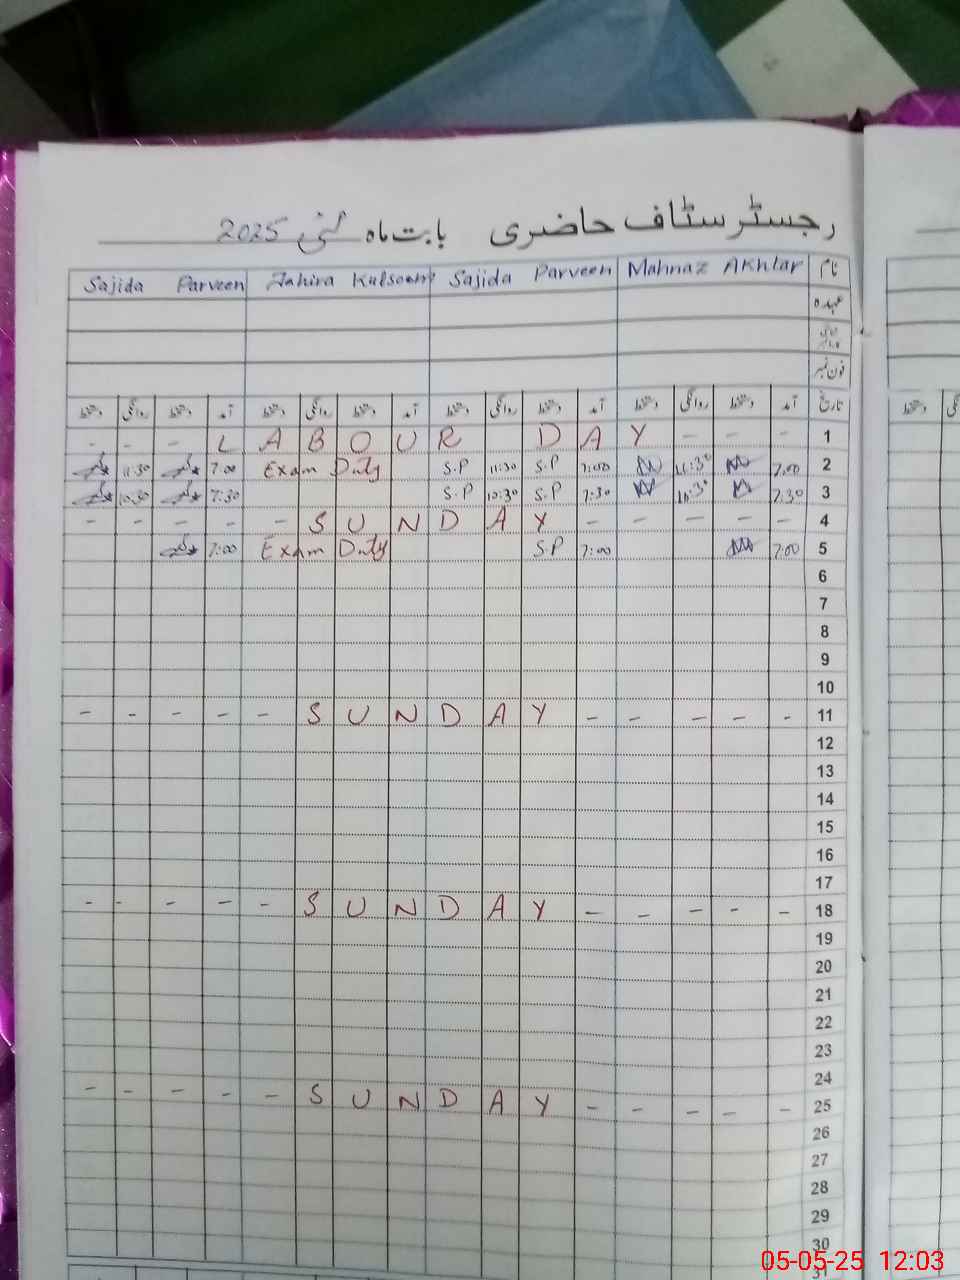 رجسٹر سٹاف حاضری بابت ماہ مئی 2025
نام Mahnaz Akhtar Sajida Parveen Zahira Kulsoom Sajida Parveen
عہدہ
فون نمبر
تاریخ آمد دستخط روانگی دستخط آمد دستخط روانگی دستخط آمد دستخط روانگی دستخط آمد دستخط روانگی دستخط
1 - - - L A B O U R D A Y - - -
2 11:30 7:00 Exam Duty S.P 11:30 S.P 7:00 11:30 7:00
3 10:30 7:30 S.P 10:30 S.P 7:30 10:30 7:30
4 - - - - - S U N D A Y - - - - -
5 7:00 Exam Duty S.P 7:00 7:00
6
7
8
9
10
11 - - - - - S U N D A Y - - - - -
12
13
14
15
16
17
18 - - - - - S U N D A Y - - - - -
19
20
21
22
23
24
25 - - - - - S U N D A Y - - - - -
26
27
28
29
30
31
05-05-25 12:03